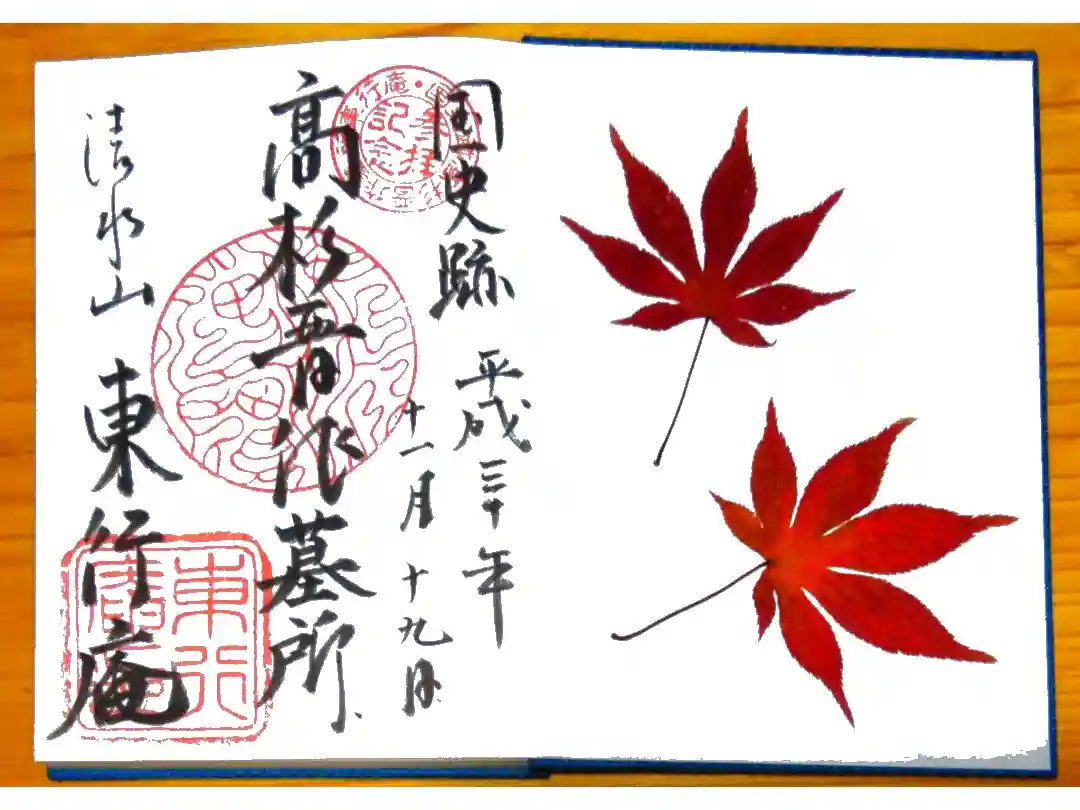 国史跡
平成三十年
十一月十九日
高杉晋作墓所
清水山 東行庵
行庵・
記念
東行庵